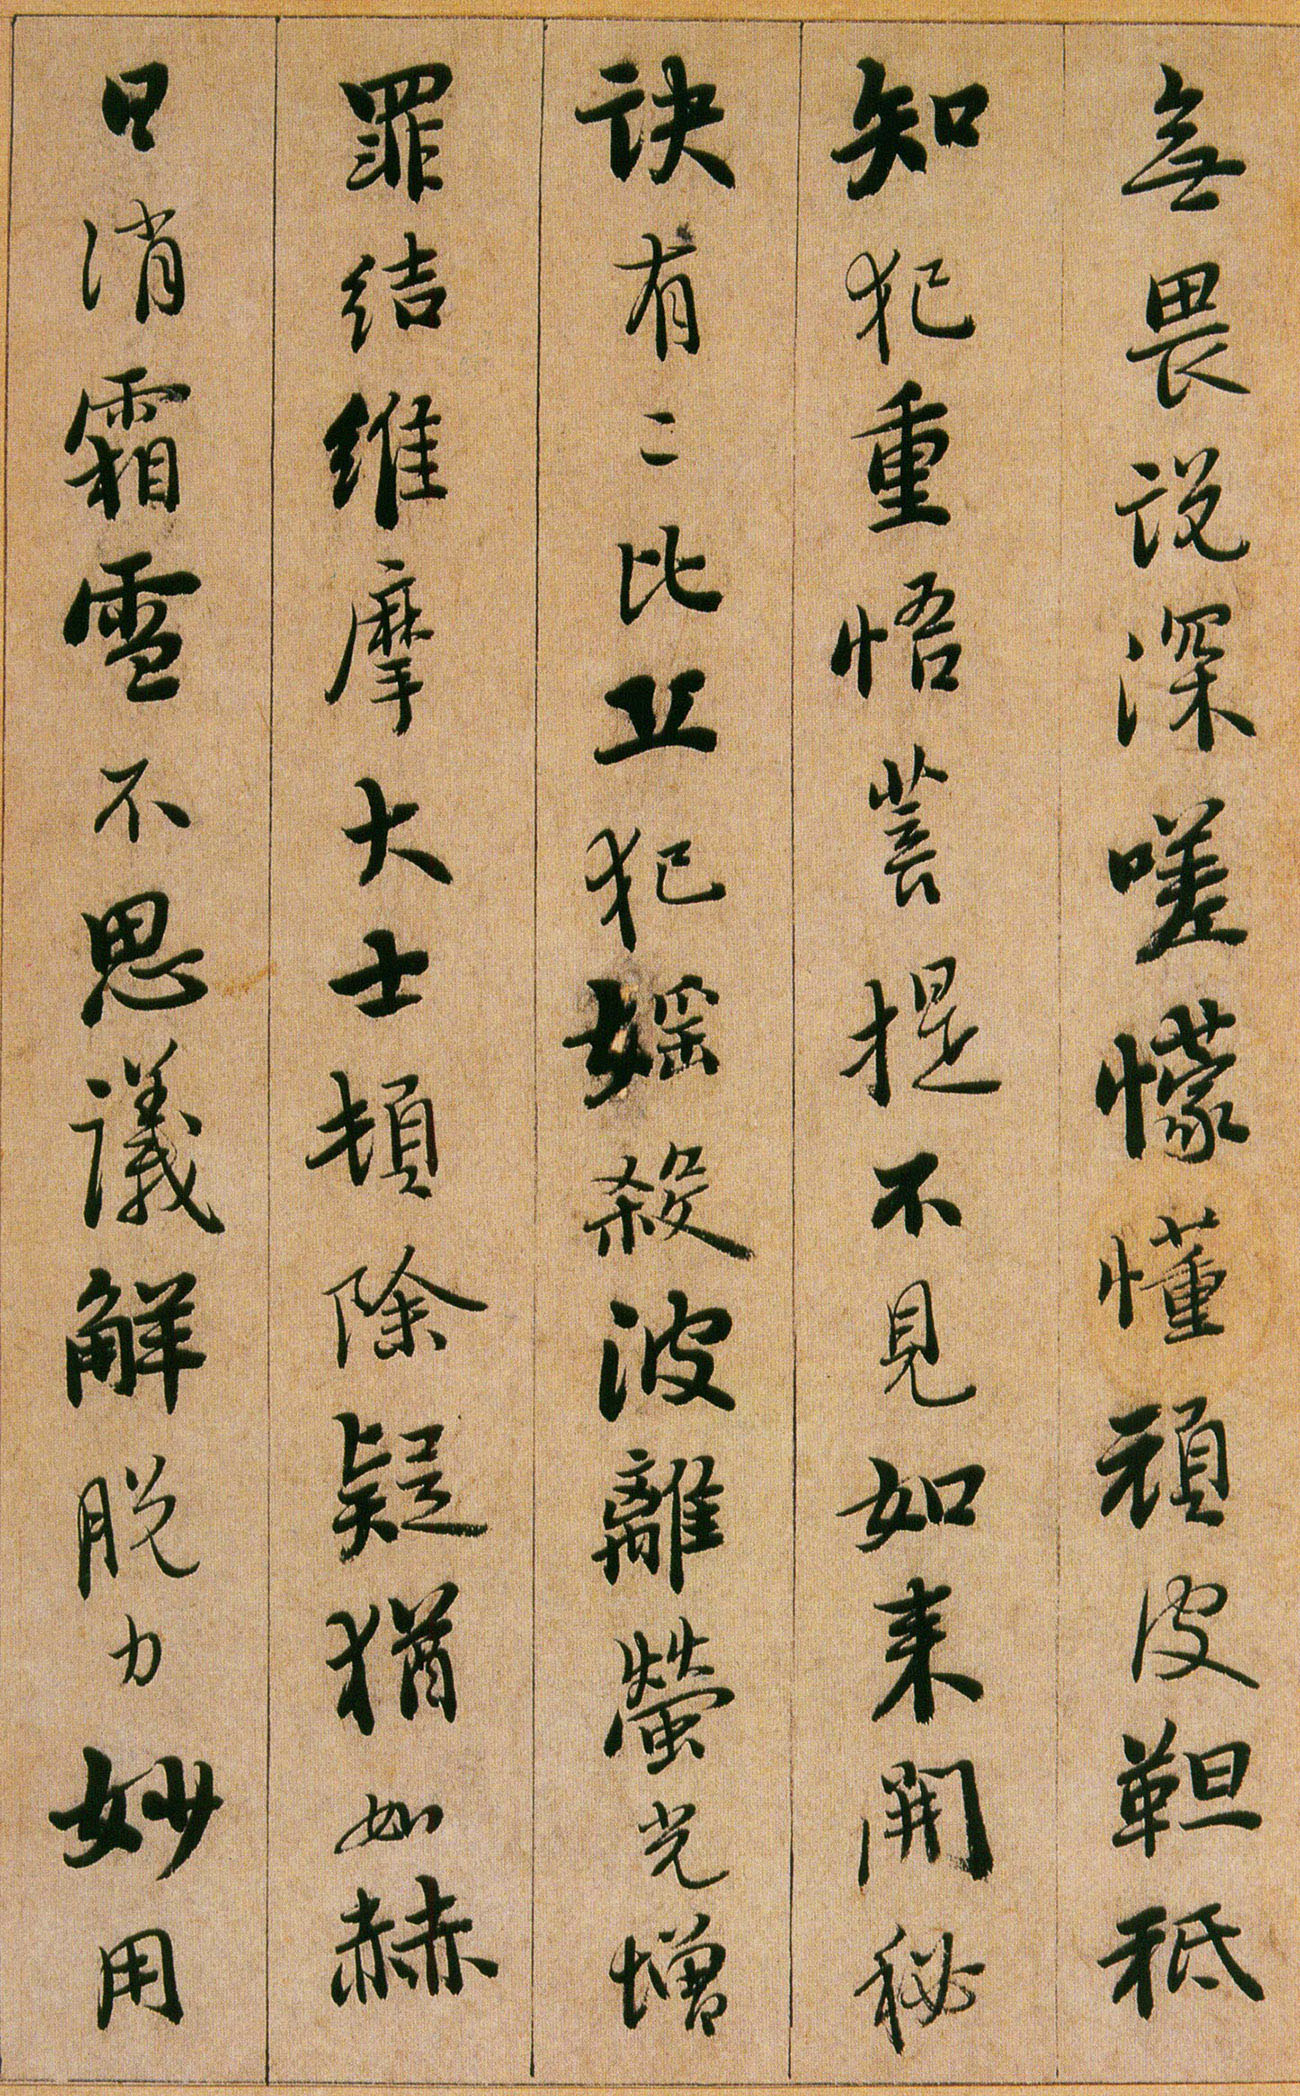 無畏说深嗟懞懂頑皮靼秖
知犯重悟菩提不見如来開秘
訣有二比丘犯婬殺波離螢光增
罪结維摩大士頓除疑猶如赫
日消霜雪不思議解脱力妙用